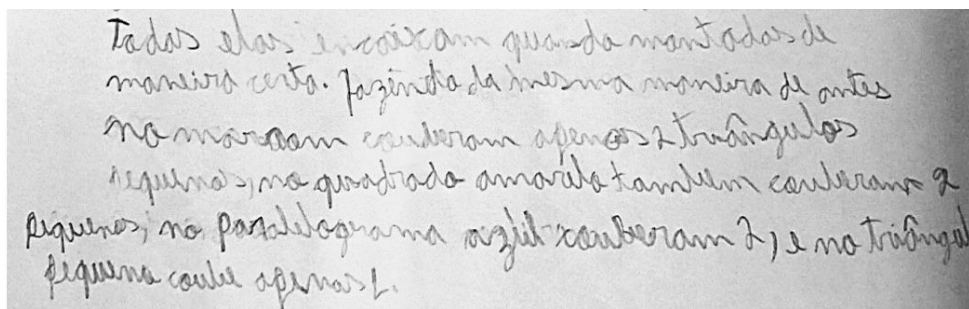 Todas elas encaixam quando montadas de
maneira certa. fazendo da mesma maneira de antes
no marrom couberam apenas 2 triângulos
pequenos, no quadrado amarelo tambem couberam 2
pequenos, no paralelograma azul couberam 2, e no triângul
pequeno coube apenas 1.